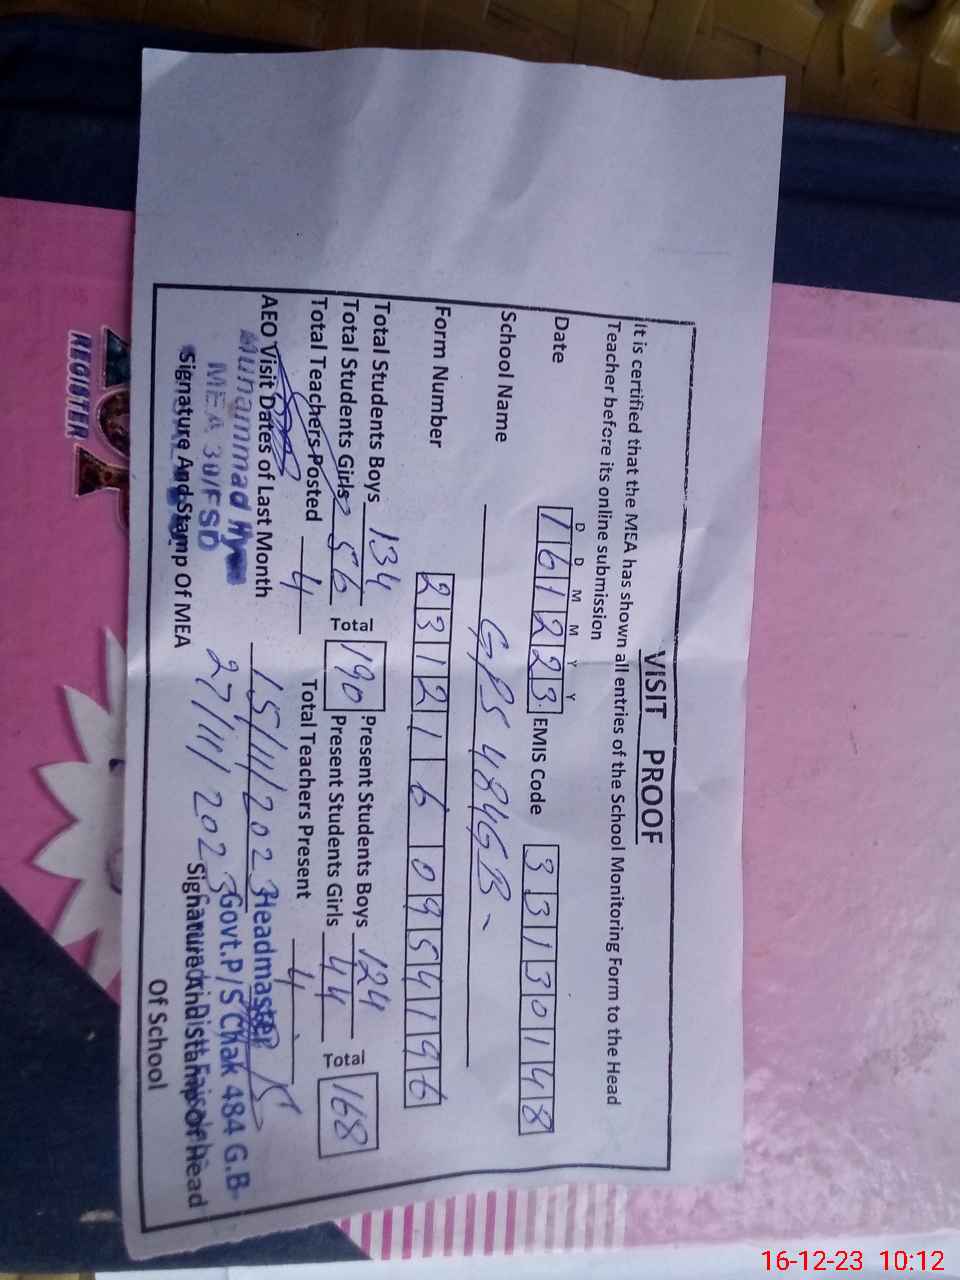 VISIT PROOF
It is certified that the MEA has shown all entries of the School Monitoring Form to the Head
Teacher before its online submission
D D M M Y Y
Date 161223 EMIS Code 33130148
School Name GPS 484GB
Form Number 2312160954196
Total Students Boys 134 Present Students Boys 124
Total Students Girls 56 Total 190 Present Students Girls 44 Total 168
Total Teachers Posted 4 Total Teachers Present 4
AEO Visit Dates of Last Month 15/11/2023 Headmaster
Muhammad
27/11/2023 Govt.P/S Chak 484 G.B
MEA 30/FSD
Signature And Stamp Of MEA Signature And Stamp Of Head
Of School
REGISTER
16-12-23 10:12